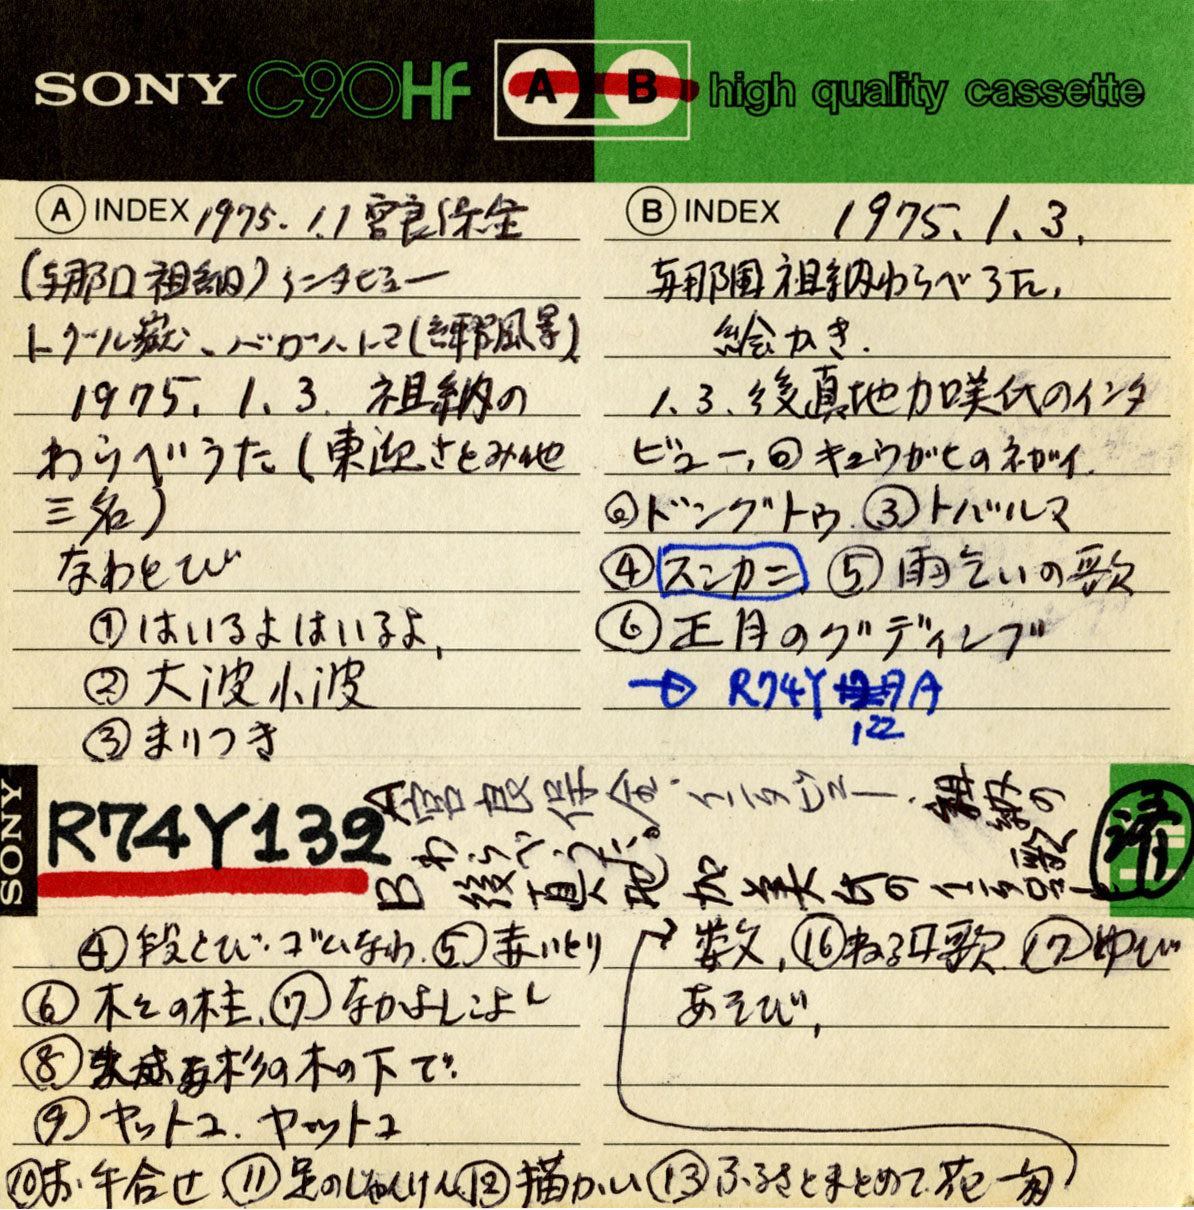 SONY C90HF A B high quality cassette
A INDEX 1975. 1.1 宮良保全
(与那口 祖納) インタビュー
トグール嶽、バガハトマ(与那風景)
1975. 1. 3. 祖納の
わらべうた (東迎さとみ他
三名)
なわとび
① はいるよはいるよ、
② 大波小波
③ まりつき
B INDEX 1975. 1. 3.
与那国 祖納わらべうた、
絵かき.
1.3. 後真地加咲氏のインタ
ビュー、① キュウガヒのネガイ.
② ドゥングトゥ ③ トバルマ
④ スンカニ ⑤ 雨乞いの歌
⑥ 正月のグディング
→ R74Y 122 A
SONY
R74Y132
A 宮良保全・インタビュー. 祖納の
わらべうた。
B 後真地加美氏のインタ
済
④ 段とび・ゴムなわ. ⑤ 赤いとり
⑥ 木その柱. ⑦ なかよしこよし
⑧ 杉の木の下で.
⑨ ヤットコ. ヤットコ
⑩ お手合せ ⑪ 足のじゃんけん ⑫ 描かい ⑬ ふるさとまとめて花一匁
数, ⑯ ねる口歌. ⑰ ゆび
あそび,